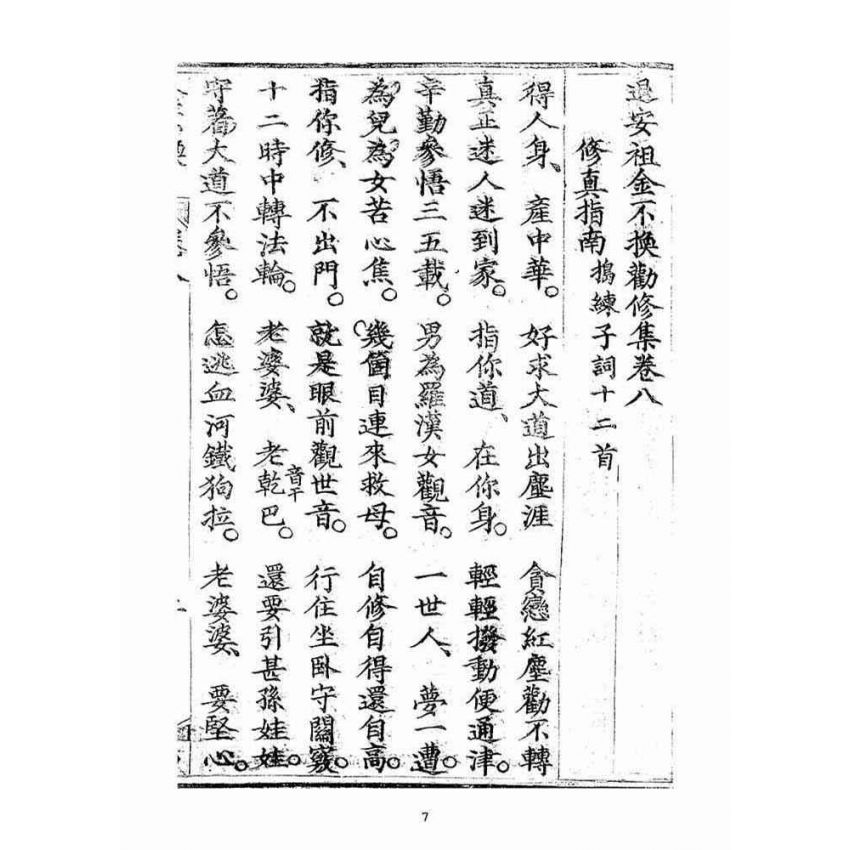 過安祖金不換勸修集卷八
修真指南 搗練子詞十二首
得人身、產中華。 好求大道出塵涯 貪戀紅塵勸不轉
真正迷人迷到家。 指你道、在你身。 輕輕撥動便通津。
辛勤參悟三五載。 男為羅漢女觀音。 一世人、夢一遭。
為兒為女苦心焦。 幾個目連來救母。 自修自得還自高。
指你修、不出門。 就是眼前觀世音。 行住坐臥守關竅。
十二時中轉法輪。 老婆婆、老乾音干巴。 還要引甚孫娃娃。
守著大道不參悟。 怎逃血河鐵狗拉。 老婆婆、要堅心。
7